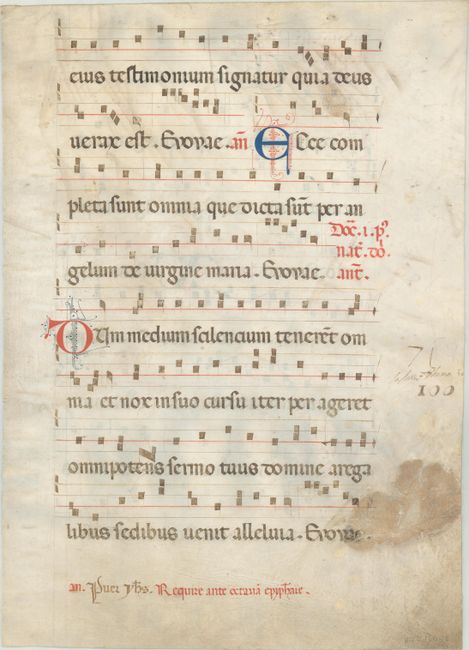 eius testimonium signatur quia deus
uerax est. Evovae. an̄ Ecce com
pleta sunt omnia que dicta sūt per an
gelum de uirgine maria. Evovae.
Doc̄. i. p̄.
nat̄. dō.
ant̄.
Dum medium scilencium tenerēt om
nia et nox in suo cursu iter per ageret
omnipotens sermo tuus domine a rega
libus sedibus uenit alleluia. Evovae.
100
an. Puer yh̄s. Require ante octauā epiph̄aie.